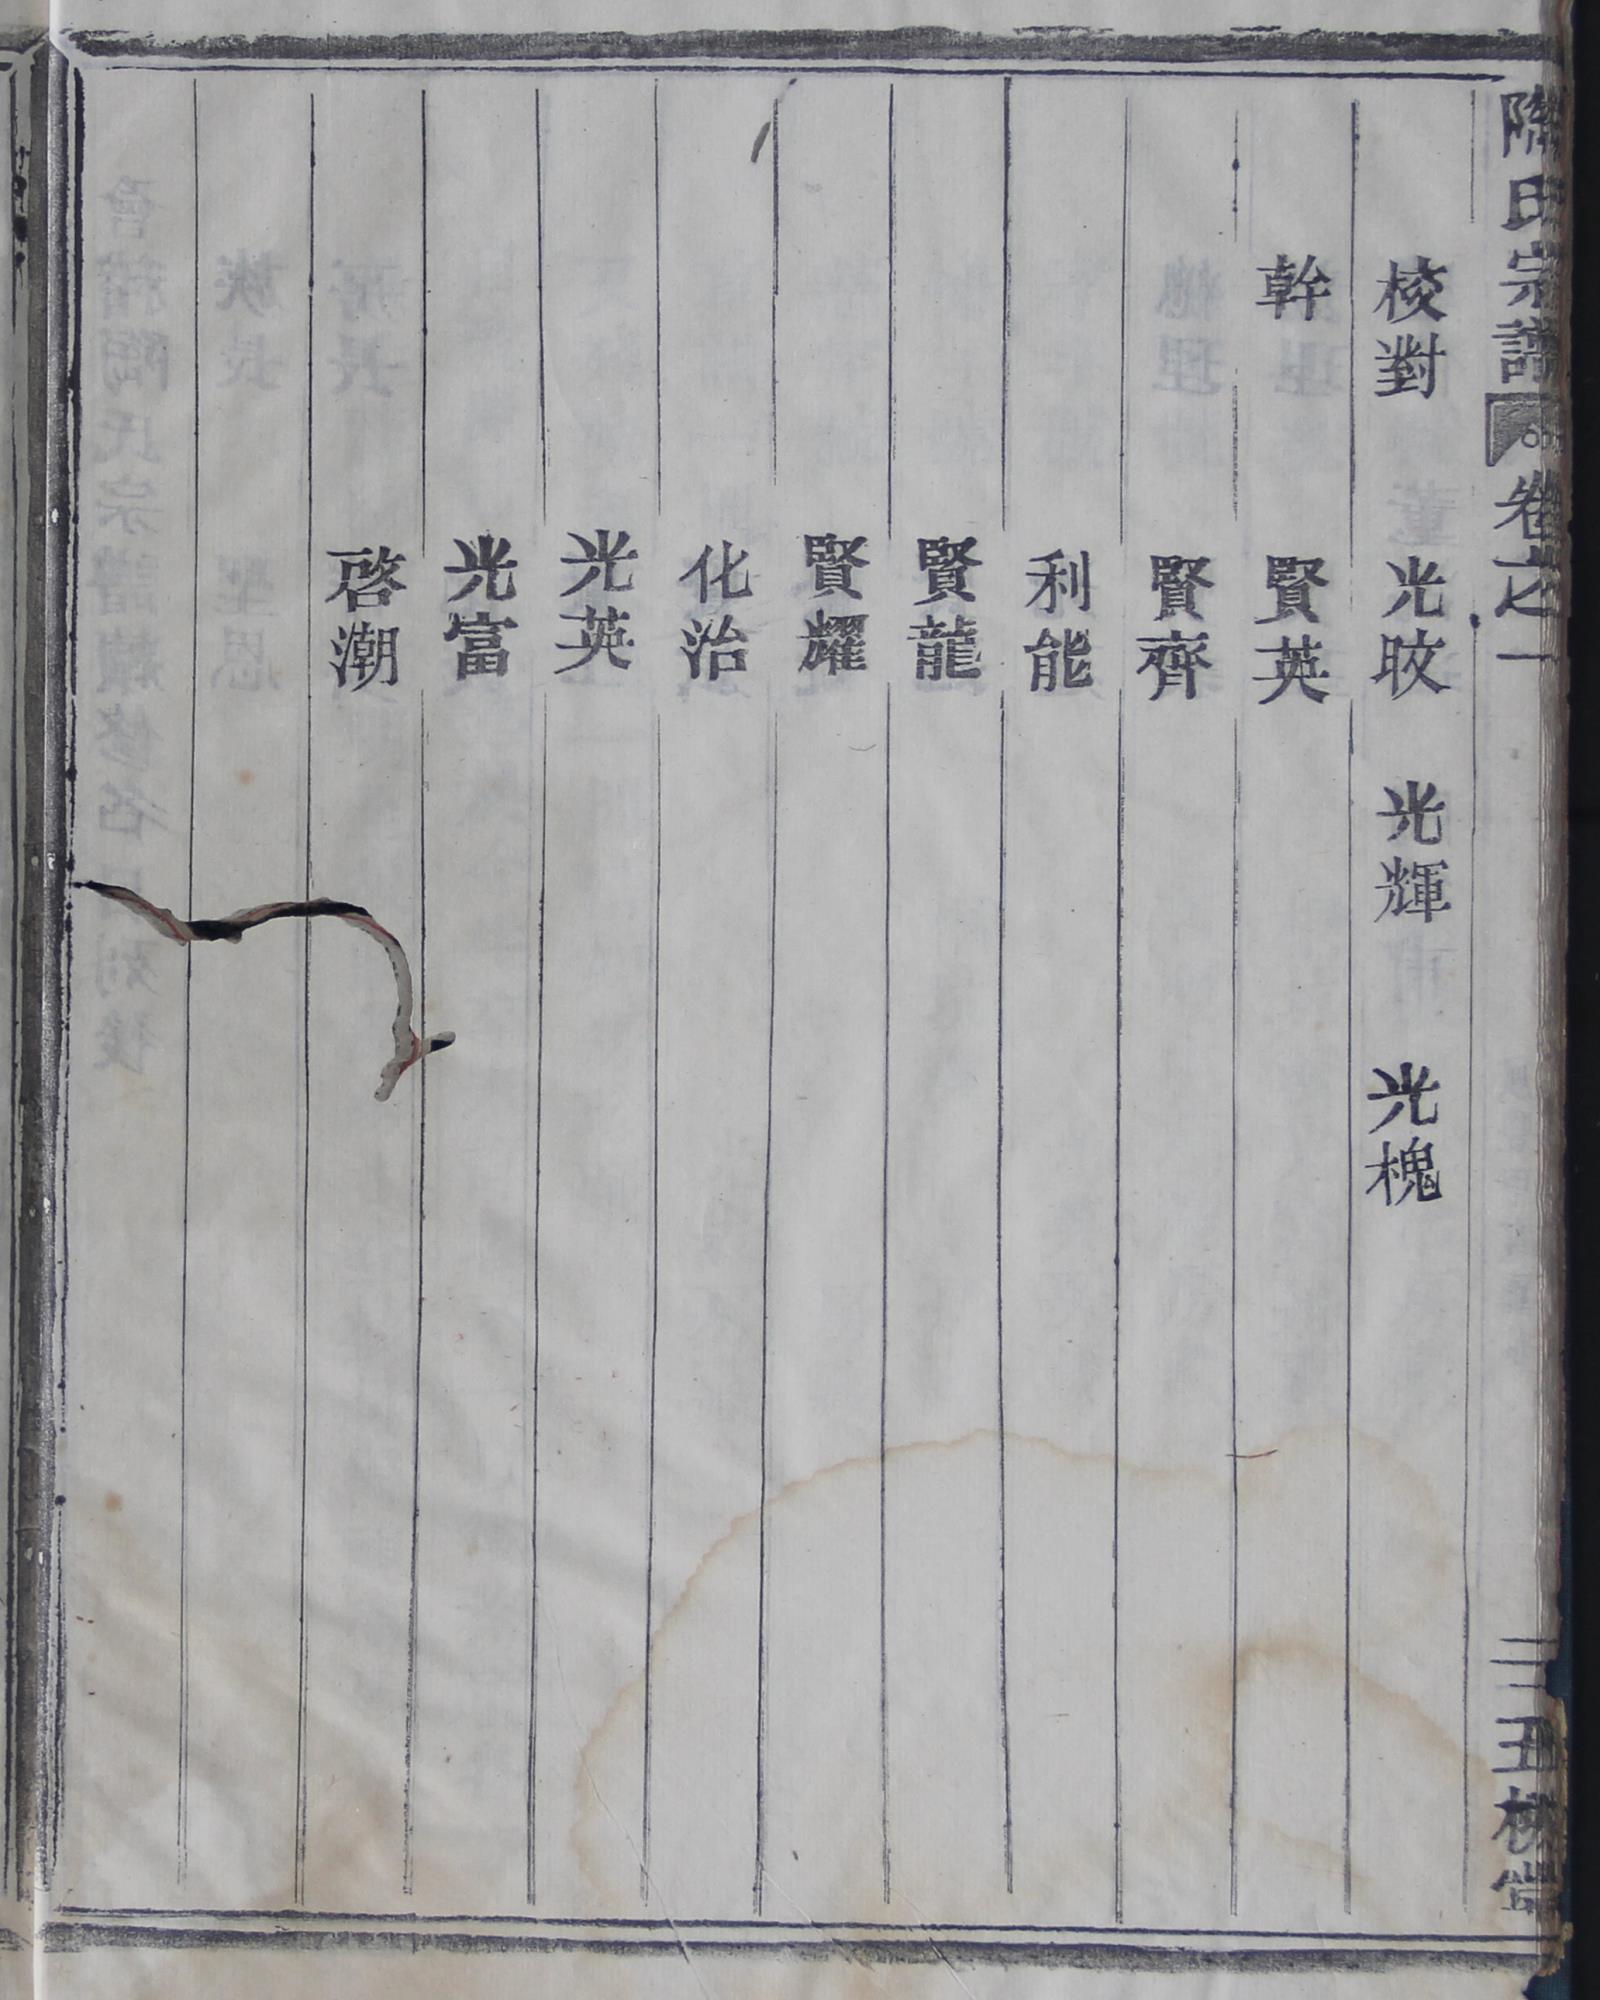 陶氏宗譜 卷之一 三 五柳堂
校對 光旼 光輝 光槐
幹 賢英
賢齊
利能
賢龍
賢耀
化治
光英
光富
啓潮